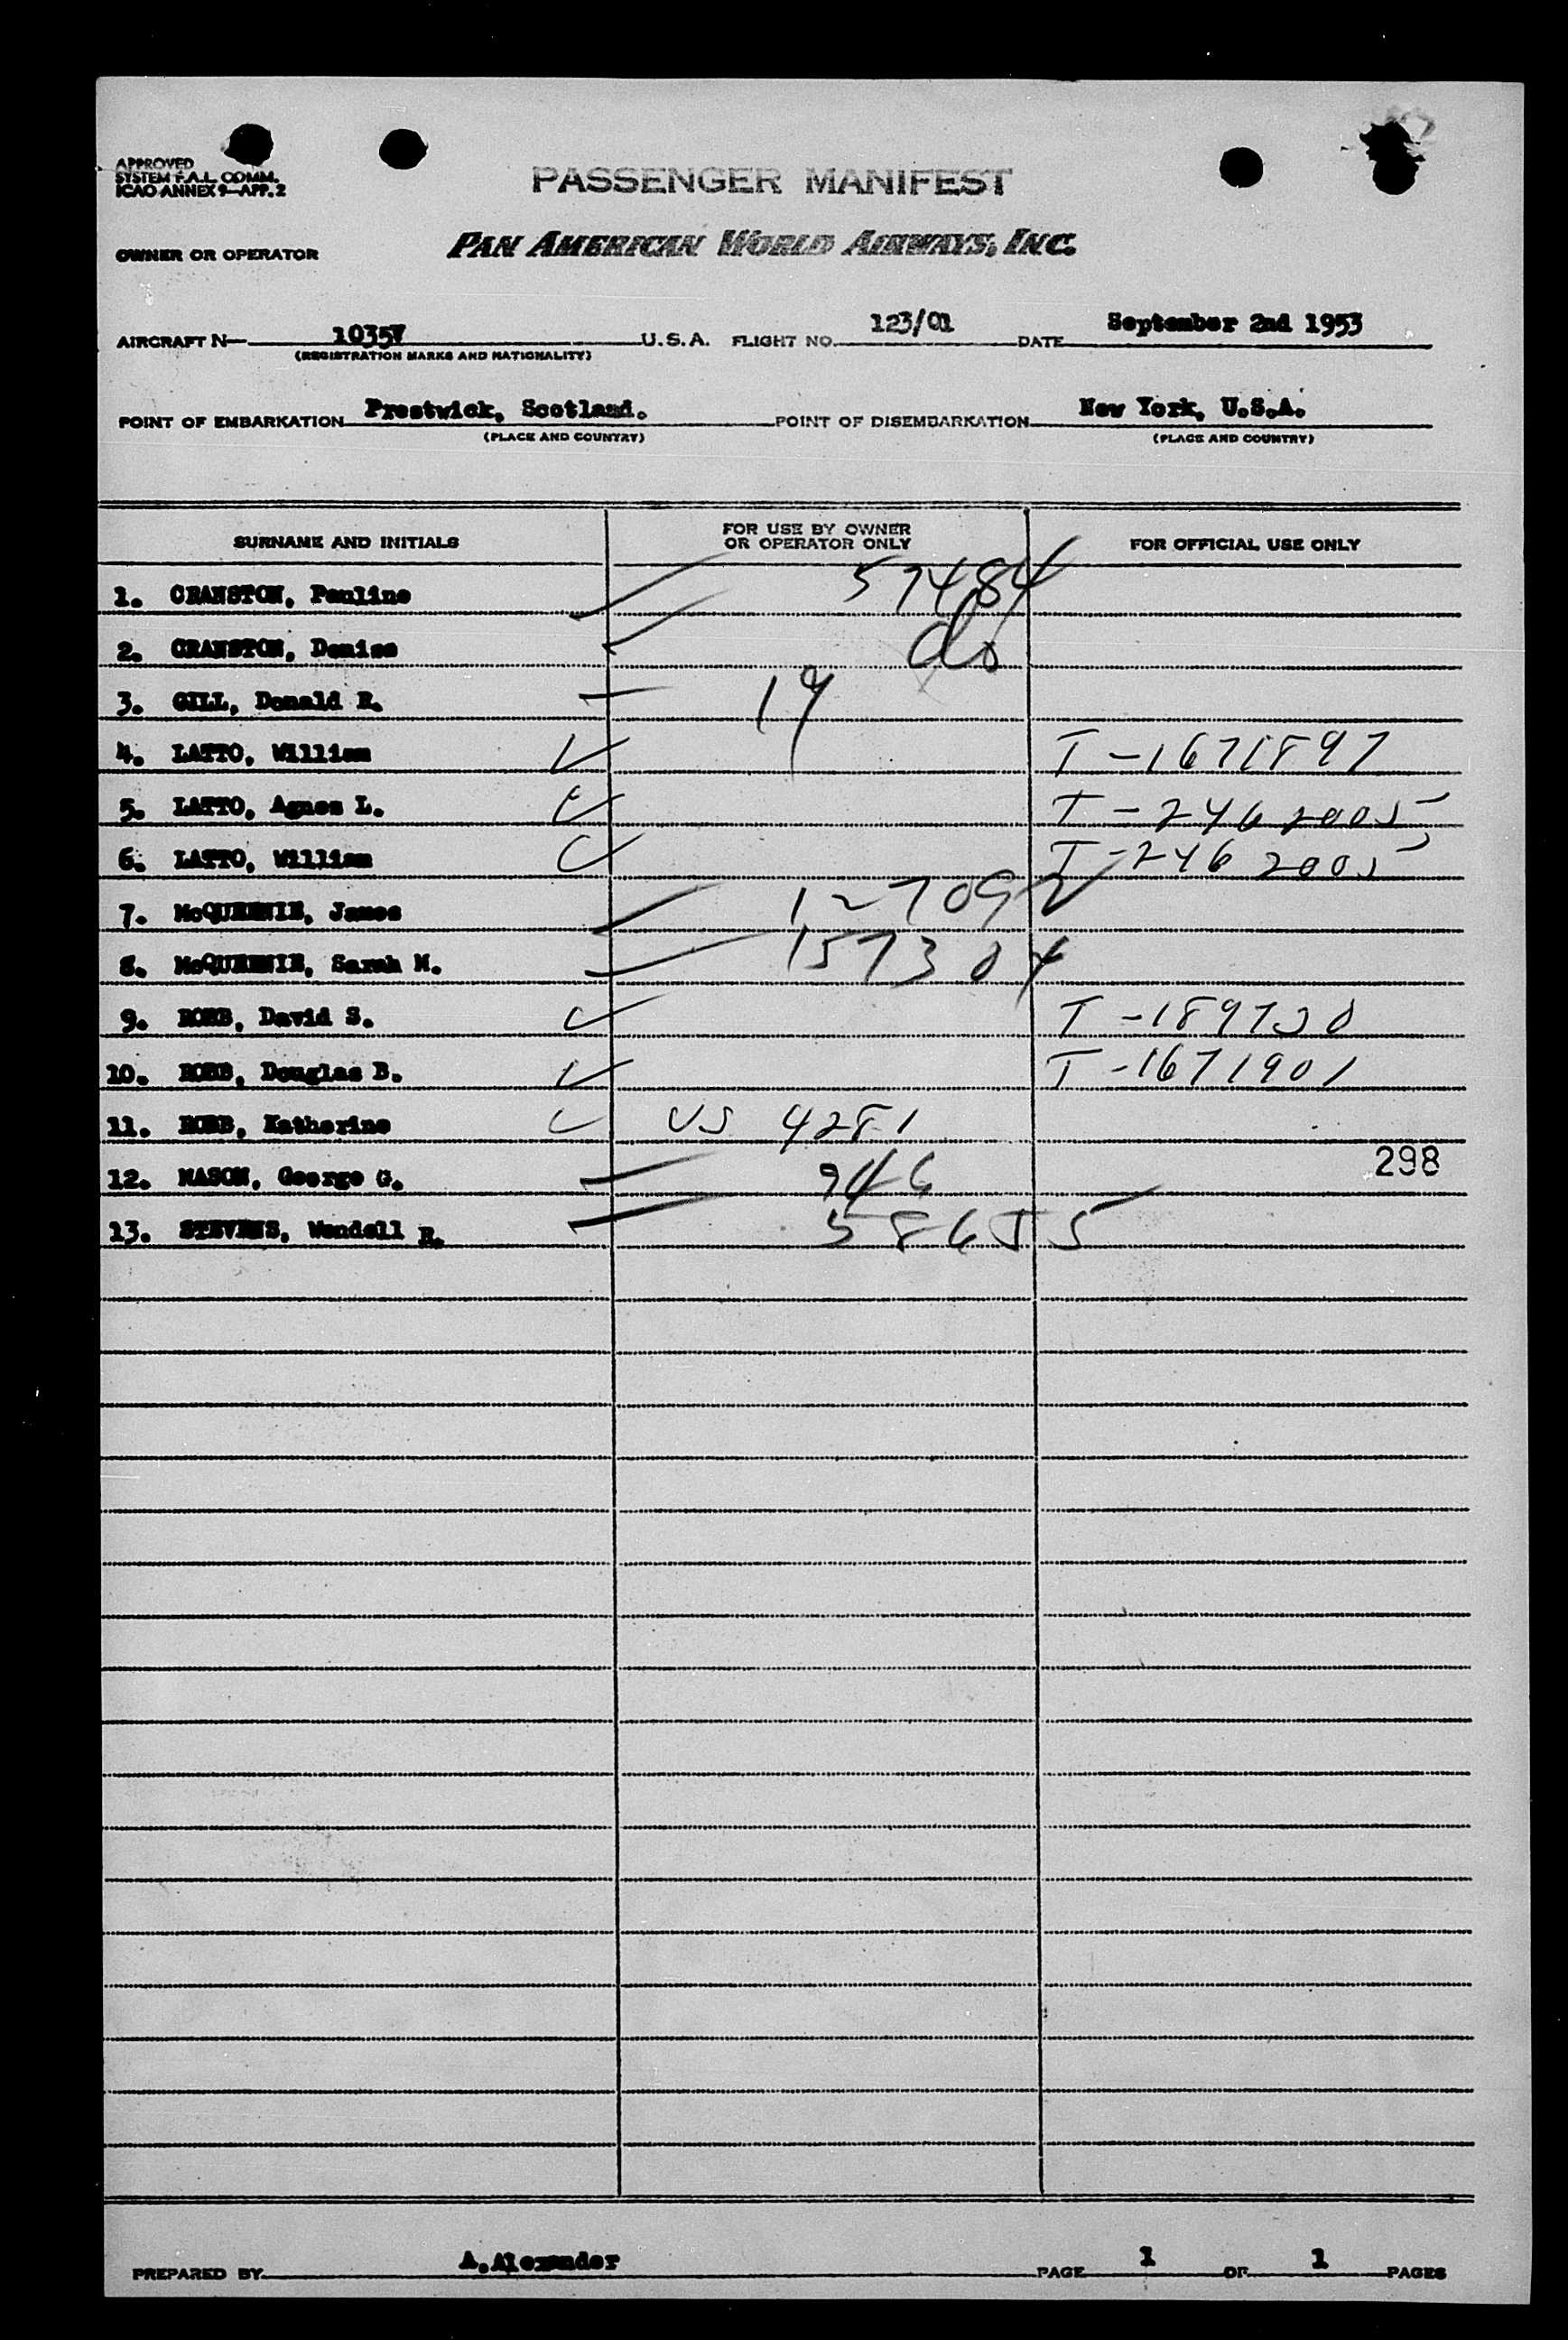 APPROVED
SYSTEM F.A.L. COMM.
ICAO ANNEX 9—APP. 2
PASSENGER MANIFEST
OWNER OR OPERATOR PAN AMERICAN WORLD AIRWAYS, INC.
AIRCRAFT N— 1035V U.S.A. FLIGHT NO. 123/01 DATE September 2nd 1953
(REGISTRATION MARKS AND NATIONALITY)
POINT OF EMBARKATION Prestwick, Scotland. POINT OF DISEMBARKATION New York, U.S.A.
(PLACE AND COUNTRY) (PLACE AND COUNTRY)
SURNAME AND INITIALS FOR USE BY OWNER OR OPERATOR ONLY FOR OFFICIAL USE ONLY
1. CRANSTON, Pauline 57484
2. CRANSTON, Denise do
3. GILL, Donald R. 19
4. LATTO, William T-1671897
5. LATTO, Agnes L. T-2462005
6. LATTO, William T-2462005
7. McQUEENIE, James 127092
8. McQUEENIE, Sarah M. 157304
9. ROBB, David S. T-189730
10. ROBB, Douglas B. T-1671901
11. ROBB, Katherine US 4281
12. MASON, George G. 946
298
13. STEVENS, Wendell R. 58655
PREPARED BY A.Alexander PAGE 1 OF 1 PAGES